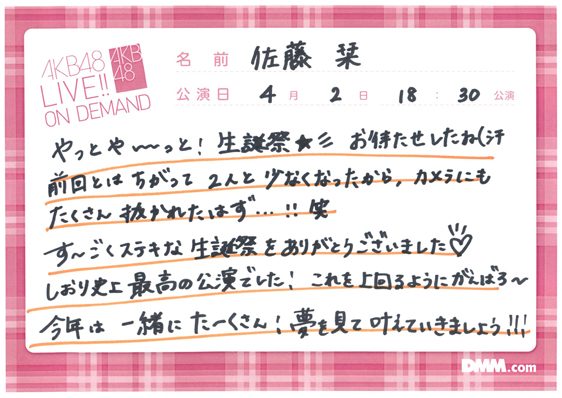 AKB48
LIVE!!
ON DEMAND
AKB
48
名前 佐藤 栞
公演日 4月 2日 18:30公演
やっとや〜〜っと! 生誕祭★彡 お待たせしたね(汗
前回とはちがって 2人と少なくなったから, カメラにも
たくさん抜かれたはず…!! 笑
す〜ごくステキな生誕祭をありがとうございました♡
しおり史上最高の公演でした! これを上回るようにがんばろ〜
今年は一緒にたーくさん! 夢を見て叶えていきましょう!!!
DMM.com